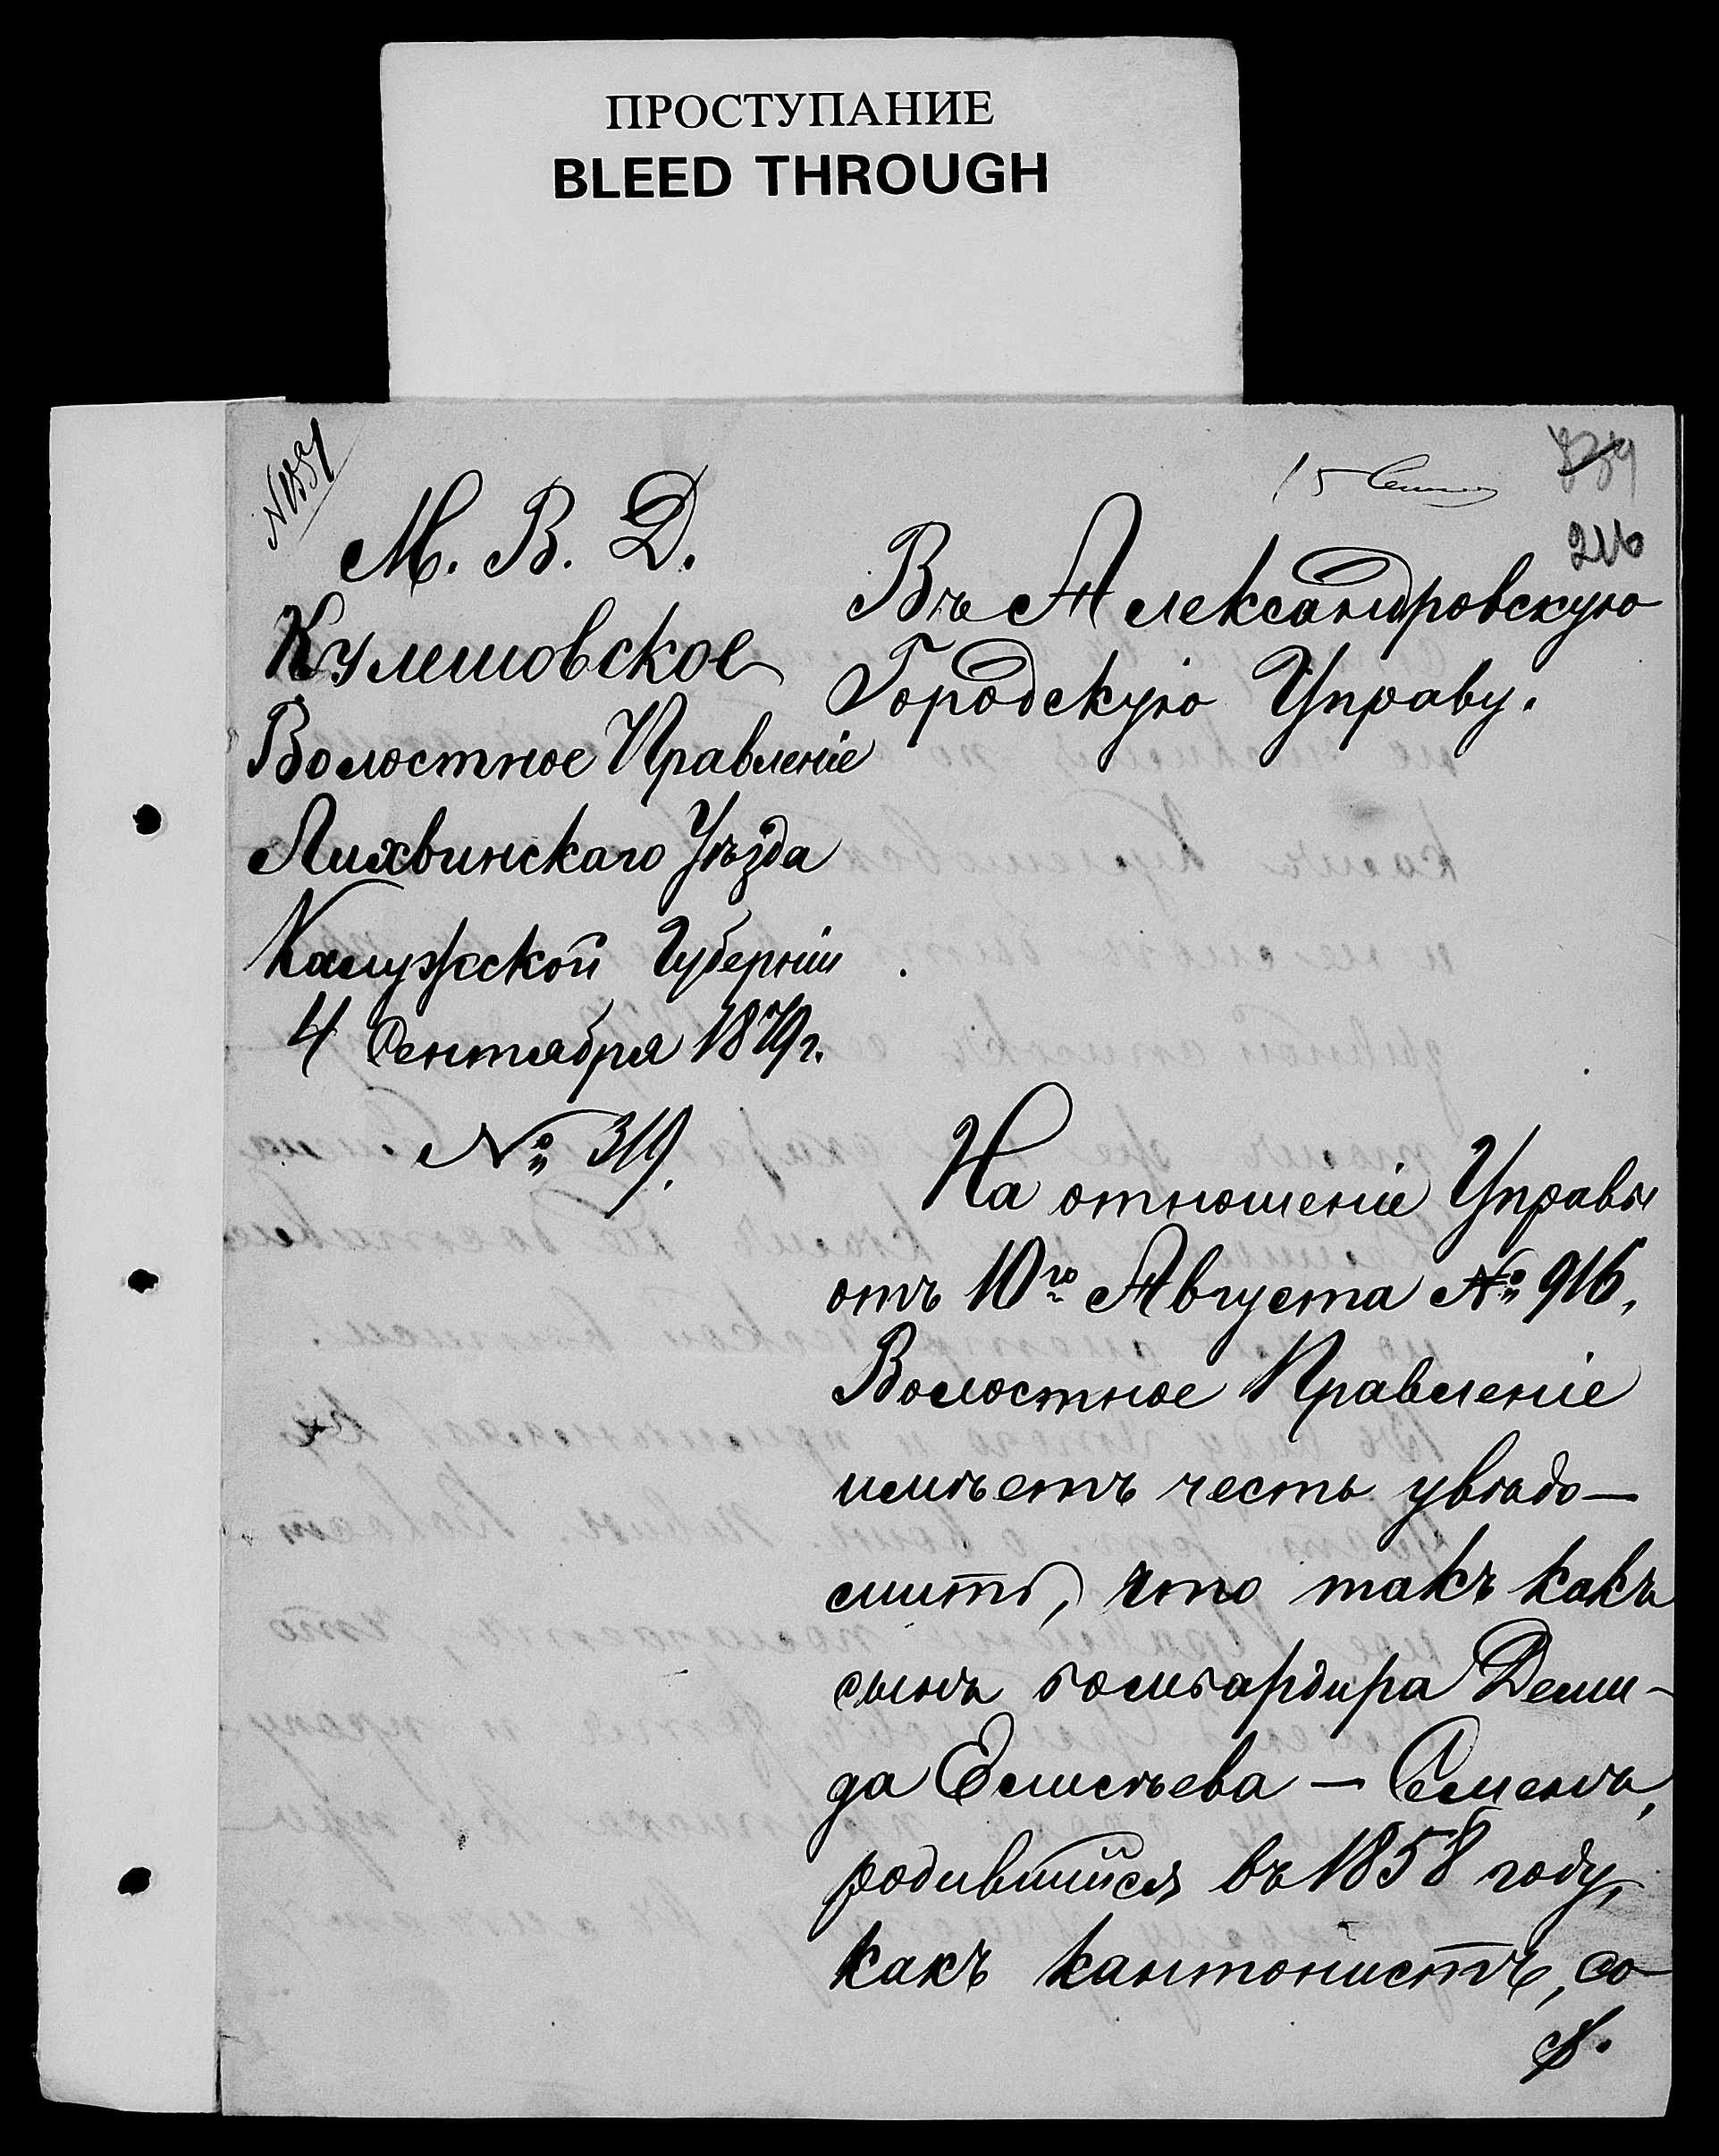 ПРОСТУПАНИЕ
BLEED THROUGH
М. В. Д.
Кулешовское
Волостное Правленіе
Лихвинскаго Уѣзда
Калужской Губерніи
4 Сентября 1879 г.
№ 319.
216
Въ Александровскую
Городскую Управу.
На отношеніе Управы
отъ 10го Августа № 916,
Волостное Правленіе
имѣетъ честь увѣдо-
мить, что такъ какъ
сынъ бомбардира Деми-
да Елисѣева — Семенъ,
родившійся въ 1858 году,
какъ кантонистъ, со-